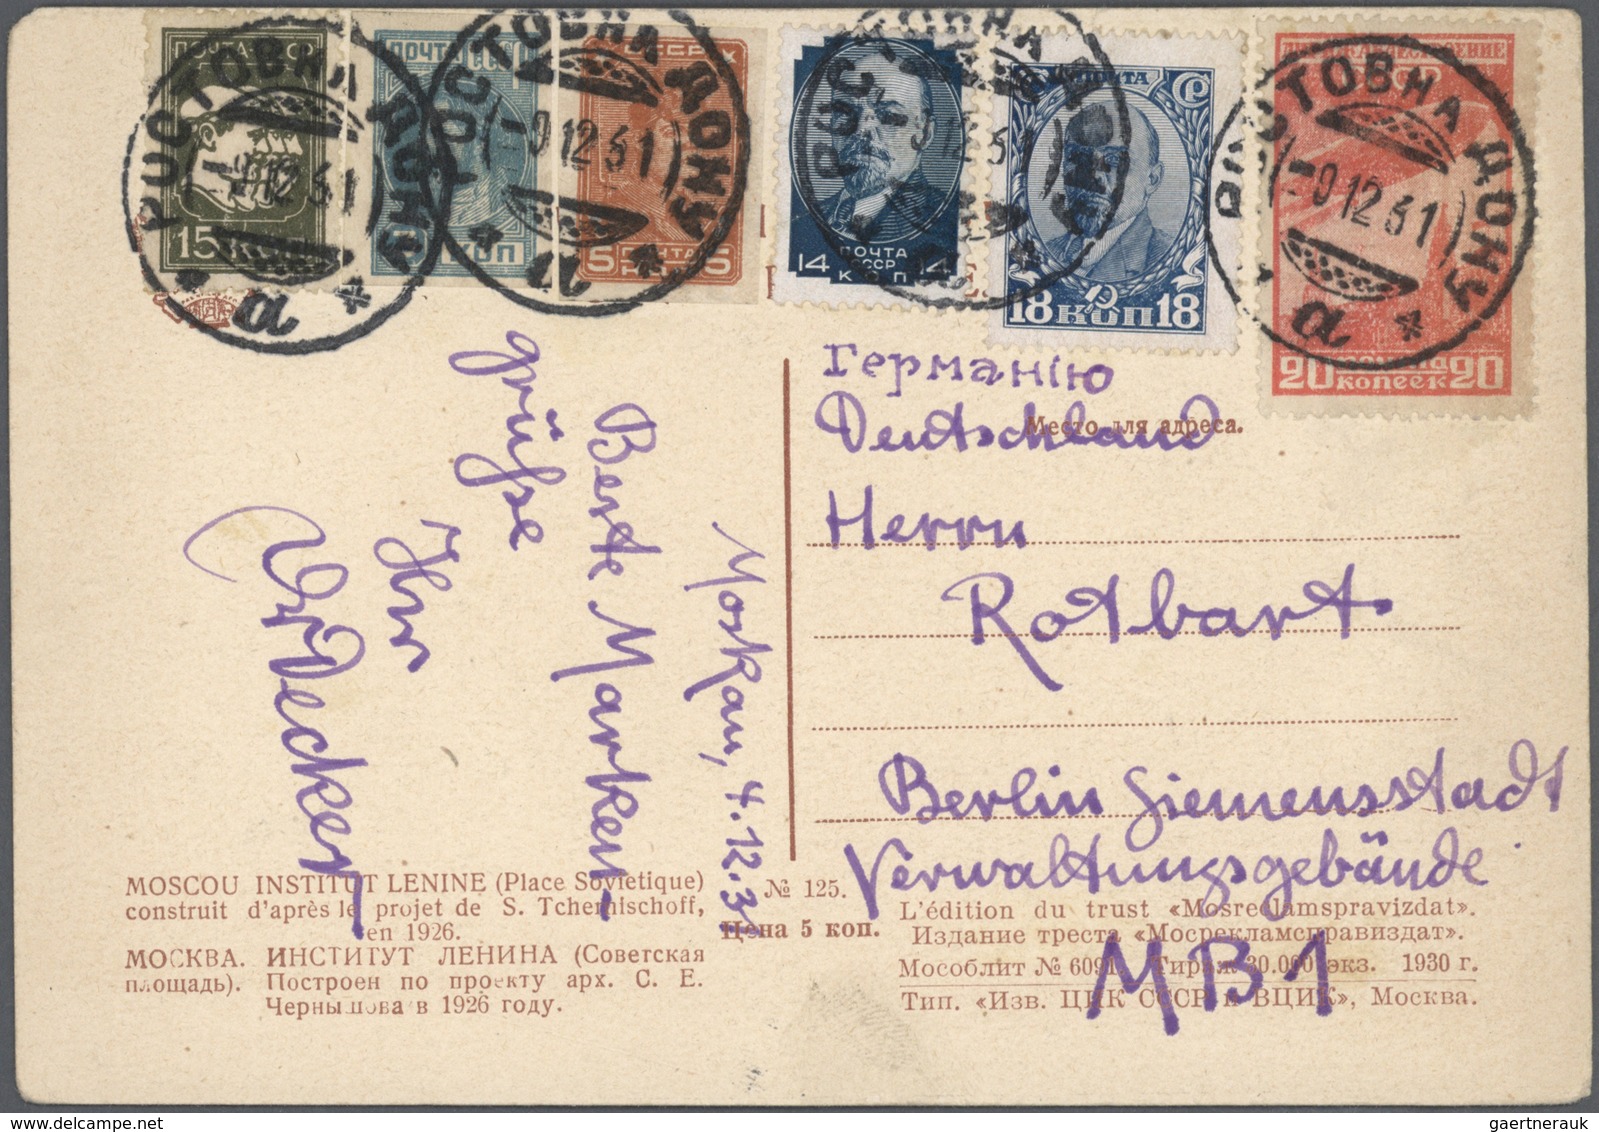 ПОЧТА СССР
15
ПОЧТА СССР
КОП
5 ПОЧТА 5
КОП
ПОЧТА
СССР
14 КОП 14
ПОЧТА
18 КОП 18
20 КОПЕЕК 20
РОСТОВ НА ДОНУ
-9 12 31
а
РОСТОВ НА ДОНУ
-9 12 31
а
РОСТОВ НА ДОНУ
РОСТОВ НА ДОНУ
-9 12 31
а
Moskau, 4.12.31
Beste Marken-
grüße
Ihr
WDecker
Германію
Deutschland
Место для адреса.
Herrn
Rotbart
Berlin Siemensstadt
Verwaltungsgebäude
MB1
MOSCOU INSTITUT LENINE (Place Sovietique)
construit d'après le projet de S. Tchernischoff,
en 1926.
МОСКВА. ИНСТИТУТ ЛЕНИНА (Советская
площадь). Построен по проекту арх. С. Е.
Чернышова в 1926 году.
№ 125.
Цена 5 коп.
L'édition du trust «Mosreclamspravizdat».
Издание треста «Мосрекламсправиздат».
Мособлит № 6091 Тираж 30.000 экз. 1930 г.
Тип. «Изв. ЦИК СССР и ВЦИК», Москва.
gaertnerauk